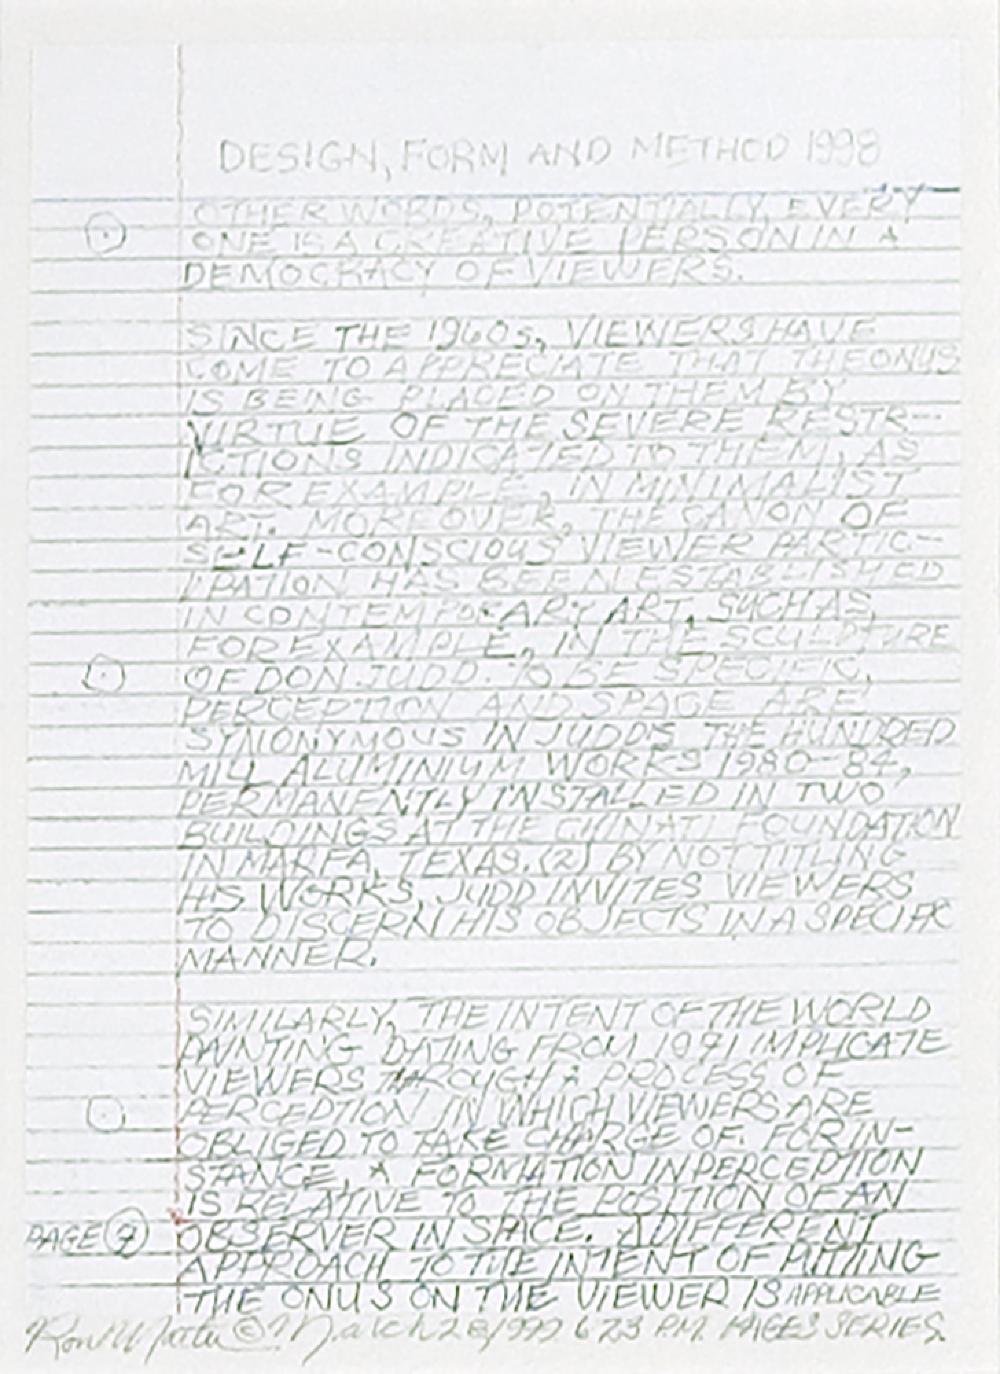 DESIGN, FORM AND METHOD 1998
OTHER WORDS, POTENTIALLY, EVERY
ONE IS A CREATIVE PERSON IN A
DEMOCRACY OF VIEWERS.
SINCE THE 1960s, VIEWERS HAVE
COME TO APPRECIATE THAT THE ONUS
IS BEING PLACED ON THEM BY
VIRTUE OF THE SEVERE RESTR-
ICTIONS INDICATED TO THEM, AS
FOR EXAMPLE, IN MINIMALIST
ART. MOREOVER, THE CANON OF
SELF-CONSCIOUS VIEWER PARTIC-
IPATION HAS BEEN ESTABLISHED
IN CONTEMPORARY ART, SUCH AS,
FOR EXAMPLE, IN THE SCULPTURE
OF DON JUDD. TO BE SPECIFIC,
PERCEPTION AND SPACE ARE
SYNONYMOUS IN JUDD'S THE HUNDRED
MILL ALUMINIUM WORKS 1980-84,
PERMANENTLY INSTALLED IN TWO
BUILDINGS AT THE CHINATI FOUNDATION
IN MARFA, TEXAS.(2) BY NOT TITLING
HIS WORKS, JUDD INVITES VIEWERS
TO DISCERN HIS OBJECTS IN A SPECIFIC
MANNER.
SIMILARLY, THE INTENT OF THE WORLD
PAINTING DATING FROM 1971 IMPLICATE
VIEWERS THROUGH A PROCESS OF
PERCEPTION IN WHICH VIEWERS ARE
OBLIGED TO TAKE CHARGE OF. FOR IN-
STANCE, A FORMATION IN PERCEPTION
IS RELATIVE TO THE POSITION OF AN
PAGE OBSERVER IN SPACE. A DIFFERENT
APPROACH TO THE INTENT OF PUTTING
THE ONUS ON THE VIEWER IS APPLICABLE
© March 28 1999 6 23 P.M. PAGES SERIES.